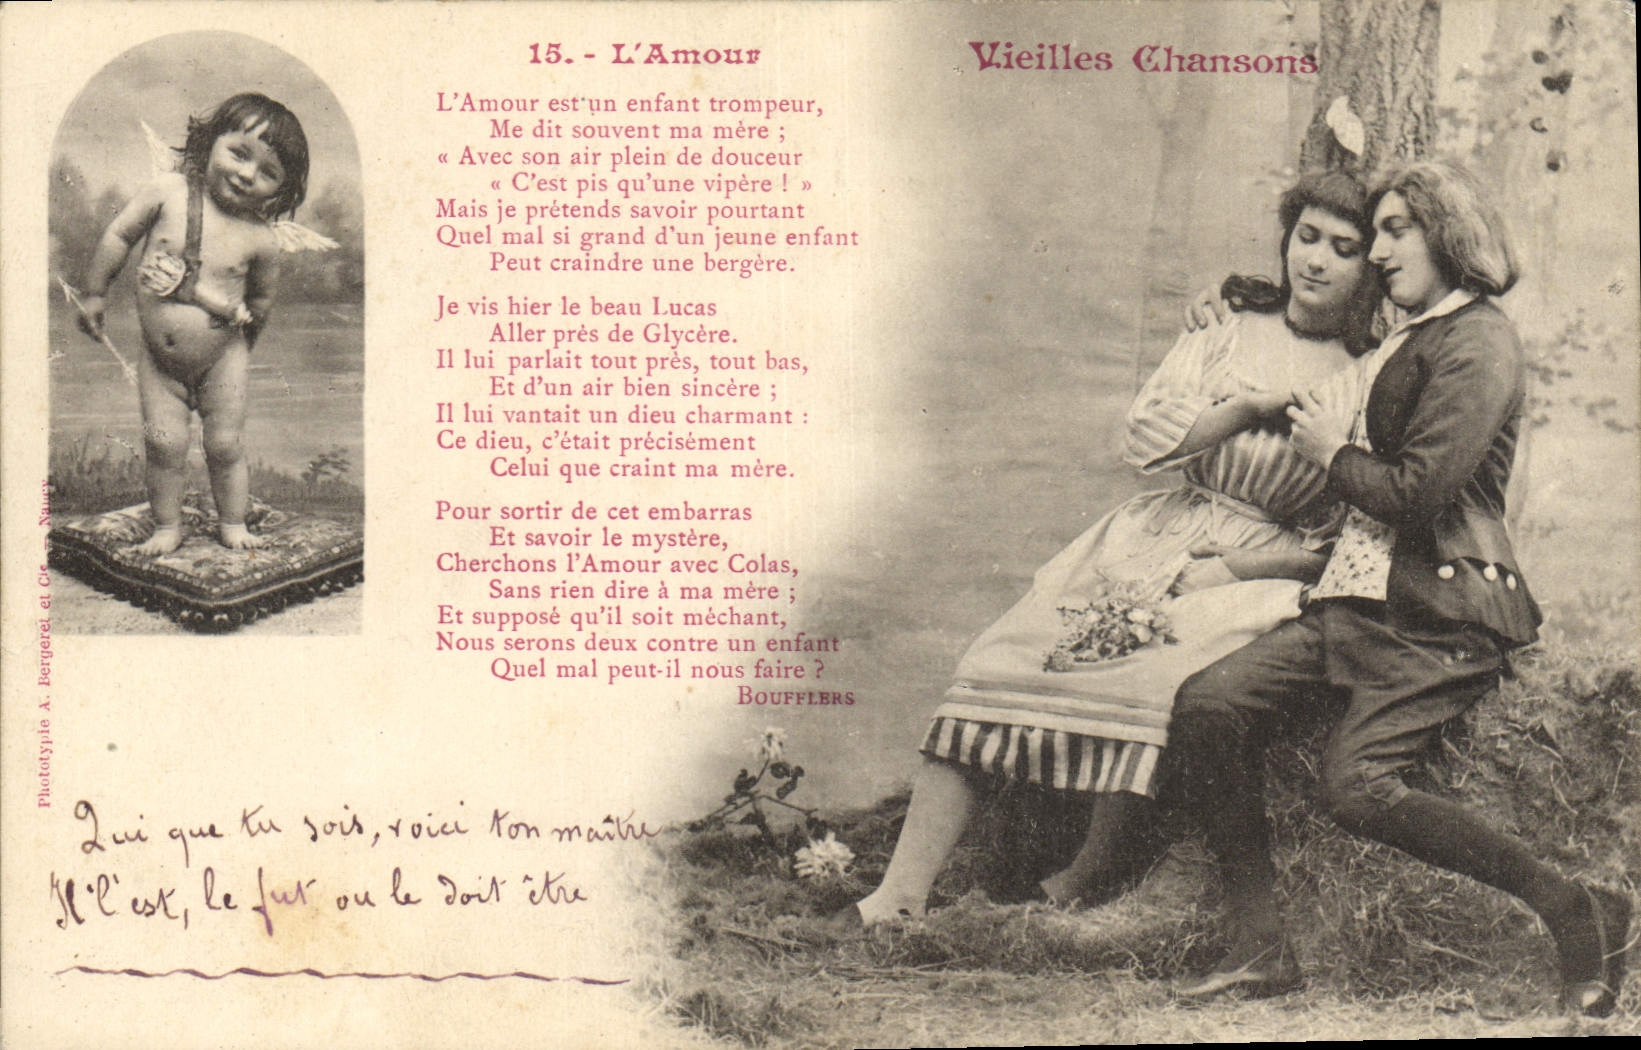 15. - L'Amour
L'Amour est un enfant trompeur,
Me dit souvent ma mère ;
« Avec son air plein de douceur
« C'est pis qu'une vipère ! »
Mais je prétends savoir pourtant
Quel mal si grand d'un jeune enfant
Peut craindre une bergère.
Je vis hier le beau Lucas
Aller près de Glycère.
Il lui parlait tout près, tout bas,
Et d'un air bien sincère ;
Il lui vantait un dieu charmant :
Ce dieu, c'était précisément
Celui que craint ma mère.
Pour sortir de cet embarras
Et savoir le mystère,
Cherchons l'Amour avec Colas,
Sans rien dire à ma mère ;
Et supposé qu'il soit méchant,
Nous serons deux contre un enfant
Quel mal peut-il nous faire ?
BOUFFLERS
Vieilles Chansons
Phototypie A. Bergeret et Cie — Nancy
Qui que tu sois, voici ton maître
Il l'est, le fut ou le doit être